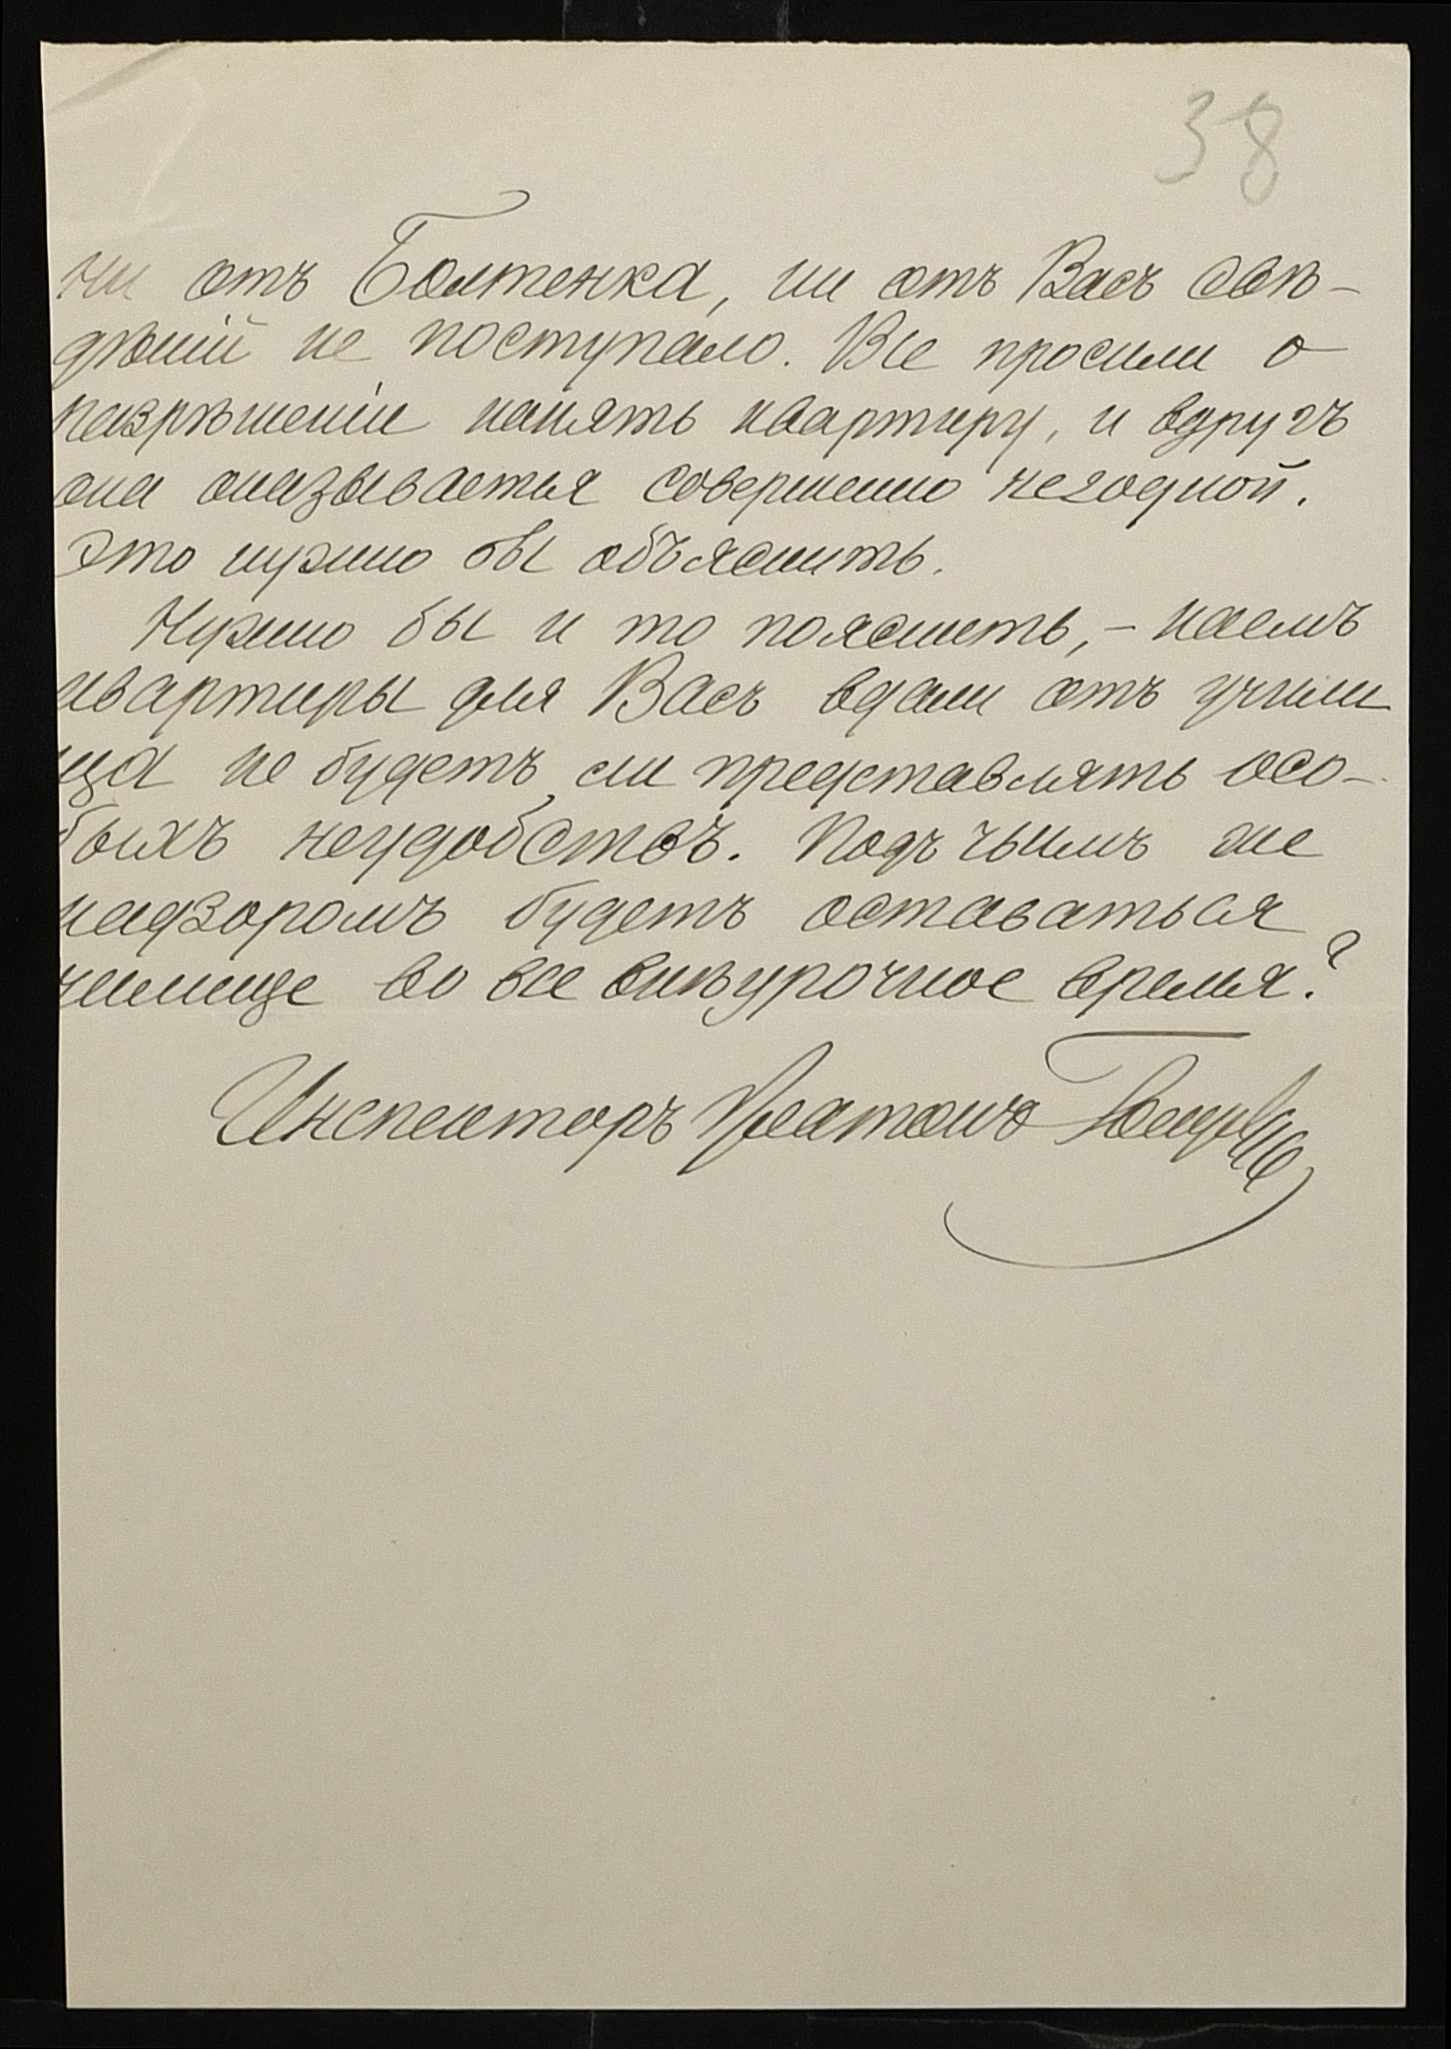 38
ни отъ Болтенка, ни отъ Васъ свѣ-
дѣній не поступало. Вы просили о
разрѣшеніи нанять квартиру, и вдругъ
она оказывается совершенно негодной.
Это нужно бы объяснить.
Нужно бы и то пояснить, - наемъ
квартиры для Васъ вдали отъ учили
ща не будетъ ли представлять осо-
быхъ неудобствъ. Подъ чьимъ же
надзоромъ будетъ оставаться
училище во все внѣурочное время?
Инспекторъ Платонъ